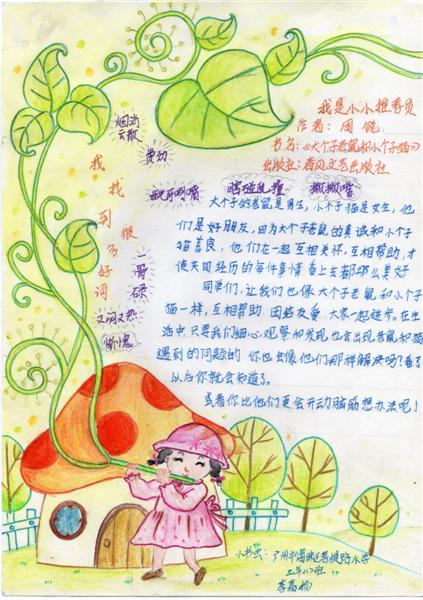 我是小小推荐员
作者：周锐
书名：《大个子老鼠和小个子猫》
出版社：春风文艺出版社
我找到很多好词
烟消云散
劳动
龇牙咧嘴
跌跌乱撞
撇撇嘴
又闷又热
惭愧
大个子的老鼠是男生，小个子猫是女生，他
们是好朋友，因为大个子老鼠的真诚和小个子
猫善良，他们在一起互相关怀，互相帮助，才
使天回经历的每件事情看上去都那么美好
同学们，让我们也像大个子老鼠和小个子
猫一样，互相帮助，团结友爱，大家一起进步，在生
活中，只要我们细心，观察和发现，也会出现老鼠和猫
遇到的问题的，你也会像他们那样解决吗？看了
以后你就会知道了。
或者你比他们更会开动脑筋想办法呢！
小书虫：广州市海珠区
李嘉